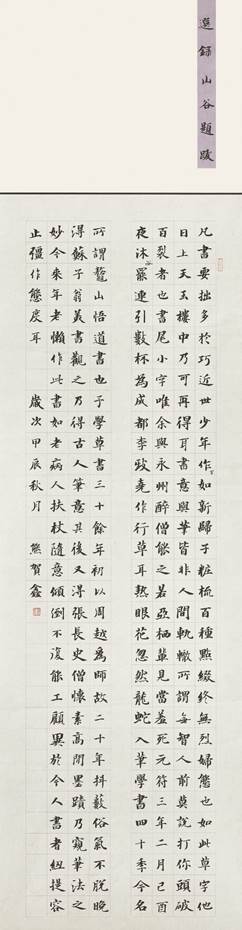 選錄山谷題跋
凡書要拙多於巧近世少年作字如新歸子粧梳百種點綴終無烈婦態也如此草字他
日上天玉樓中乃可再得耳書意與筆皆非人間軌轍所謂每智人前莫說打你頭破
百裂者也書尾小字唯余與永州醉僧能之若亞栖輩見當羞死元符三年二月己酉
夜沐罷連引數杯為成都李致堯作行草耳熱眼花忽然龍蛇入筆學書四十季今名
所謂鰲山悟道書也予學草書三十餘年初以周越為師故二十年抖藪俗氣不脫晚
得蘇子翁美書觀之乃得古人筆意其後又得張長史僧懷素高閒墨蹟乃窺筆法之
妙今來年老懶作此書如老病人扶杖隨意傾倒不復能工顧異於今人書者紐提容
止彊作態度耳 歲次甲辰秋月 熊賀鑫